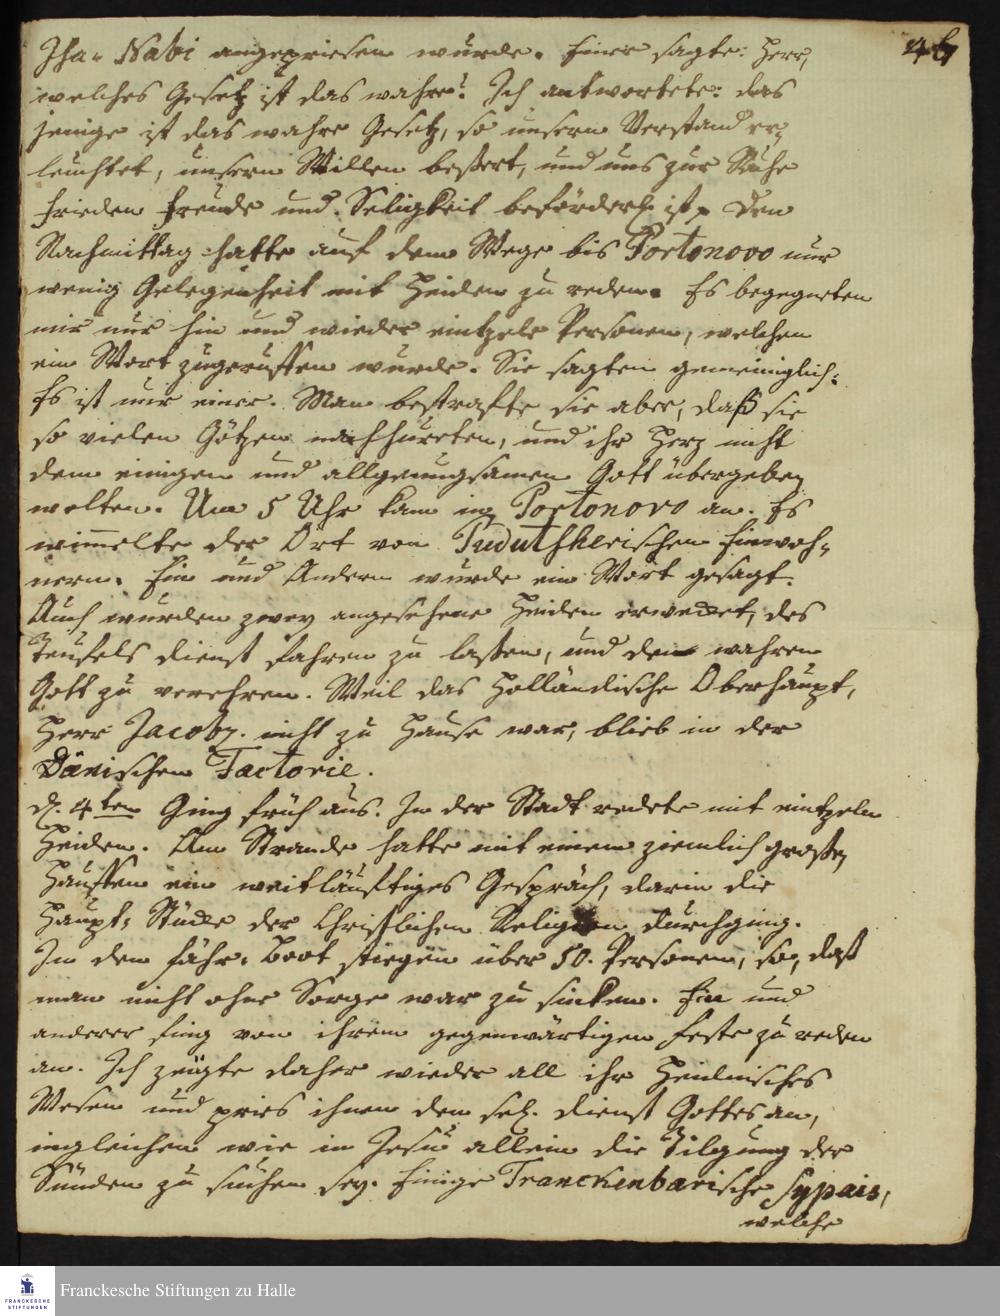 Isa-Nabi angepriesen wurde. Einer sagte: Herr,
welches Gesetz ist das wahre? Ich antwortete: das
jenige ist das wahre Gesetz, so unsern Verstand er,
leuchtet, unsern Willen beßert, und uns zur Ruhe
Frieden Freude und Seligkeit beförderl. ist. Den
Nachmittag hatte auf dem Wege bis Portonovo nur
wenig Gelegenheit mit Heiden zu reden. Es begegneten
mir nur hin und wieder eintzele Personen, welchen
ein Wort zugeruffen wurde. Sie sagten gemeiniglich:
Es ist nur einer. Man bestrafte sie aber, daß sie
so vielen Götzen nachhureten, und ihr Herz nicht
dem einigen und allgenungsamen Gott übergeben
wolten. Um 5 Uhr kam in Portonovo an. Es
wimmelte der Ort von Pudutscherischen Einwoh-
nern. Ein und Andern wurde ein Wort gesagt.
Auch wurden zwey angesehene Heiden erwecket, des
Teufels dienst fahren zu laßen, und den wahren
Gott zu verehren. Weil das Holländische Oberhaupt,
Herr Jacoby. nicht zu Hause war, blieb in der
Dänischen Factorie.
d. 4ten Ging früh aus. In der Stadt redete mit eintzeln
Heiden. Am Strande hatte mit einem ziemlich großen
Hauffen ein weitläuftiges Gespräch, darin die
Haupt-Stücke der Christlichen Religion durchging.
In dem Fähr-Boot stiegen über 50. Personen, so, daß
man nicht ohne Sorge war zu sincken. Ein und
anderer fing von ihrem gegenwärtigen Feste zu reden
an. Ich zeugte daher wieder all ihr Heidnisches
Wesen und pries ihnen den sel. dienst Gottes an,
ingleichen wie in Jesu allein die Tilgung der
Sünden zu suchen sey. Einige Tranckenbarische Sypais,
welche
Franckesche Stiftungen zu Halle
FRANCKESCHE
STIFTUNGEN